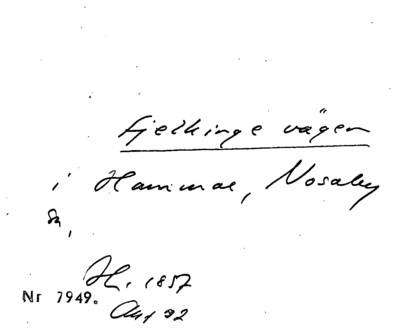 Fjelkinge vägen
i Hammar, Nosaby
Sk,
1857
Nr 7949.